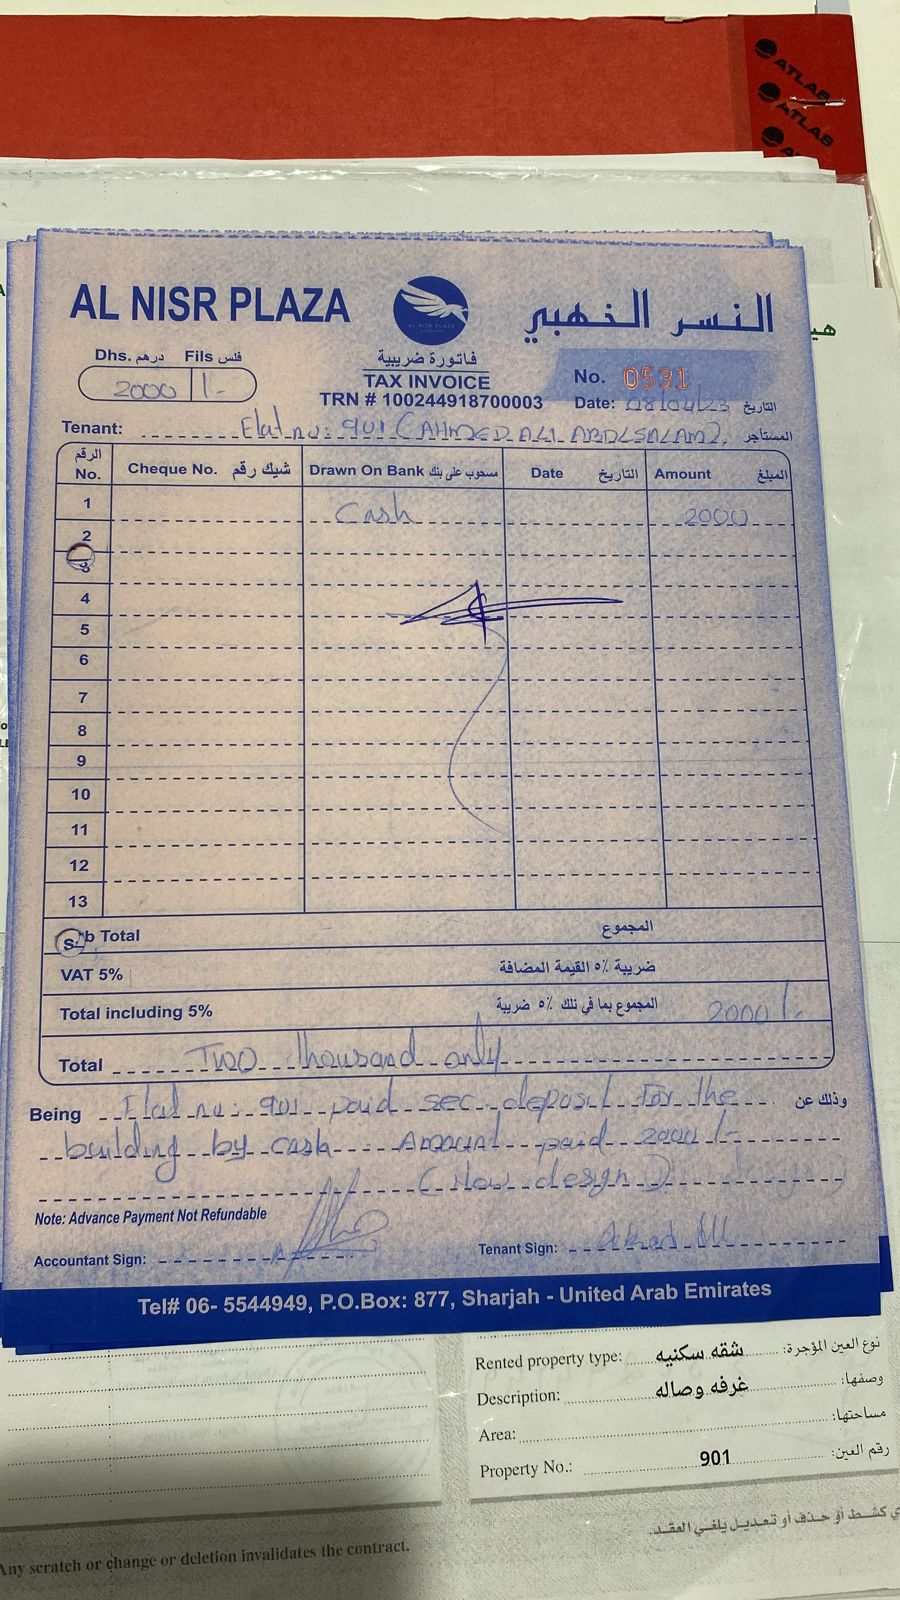 ATLAB
ATLAB
AL NISR PLAZA
النسر الخهبي
AL NISR PLAZA
Dhs. درهم Fils فلس
2000 /-
فاتورة ضريبية
TAX INVOICE
TRN # 100244918700003
No. 0531
Date: 08/04/23 التاريخ
Tenant: Flat no: 901 (AHMED ALI ABDLSALAM). المستأجر
الرقم No. Cheque No. شيك رقم Drawn On Bank مسحوب على بنك Date التاريخ Amount المبلغ
1 Cash 2000
2
3
4
5
6
7
8
9
10
11
12
13
Sub Total المجموع
VAT 5% ضريبة ٥٪ القيمة المضافة
Total including 5% المجموع بما في ذلك ٥٪ ضريبة 2000/-
Total Two thousand only
Being Flat no: 901 paid sec. deposit for the وذلك عن
building by cash Amount paid 2000/-
design)
Note: Advance Payment Not Refundable
Accountant Sign:
Tenant Sign:
Tel# 06- 5544949, P.O.Box: 877, Sharjah - United Arab Emirates
Rented property type: شقه سكنيه نوع العين المؤجرة:
Description: غرفه وصاله وصفها:
Area: مساحتها:
Property No.: 901 رقم العين:
كشط أو حذف او تعديل يلغي العقد.
Any scratch or change or deletion invalidates the contract.